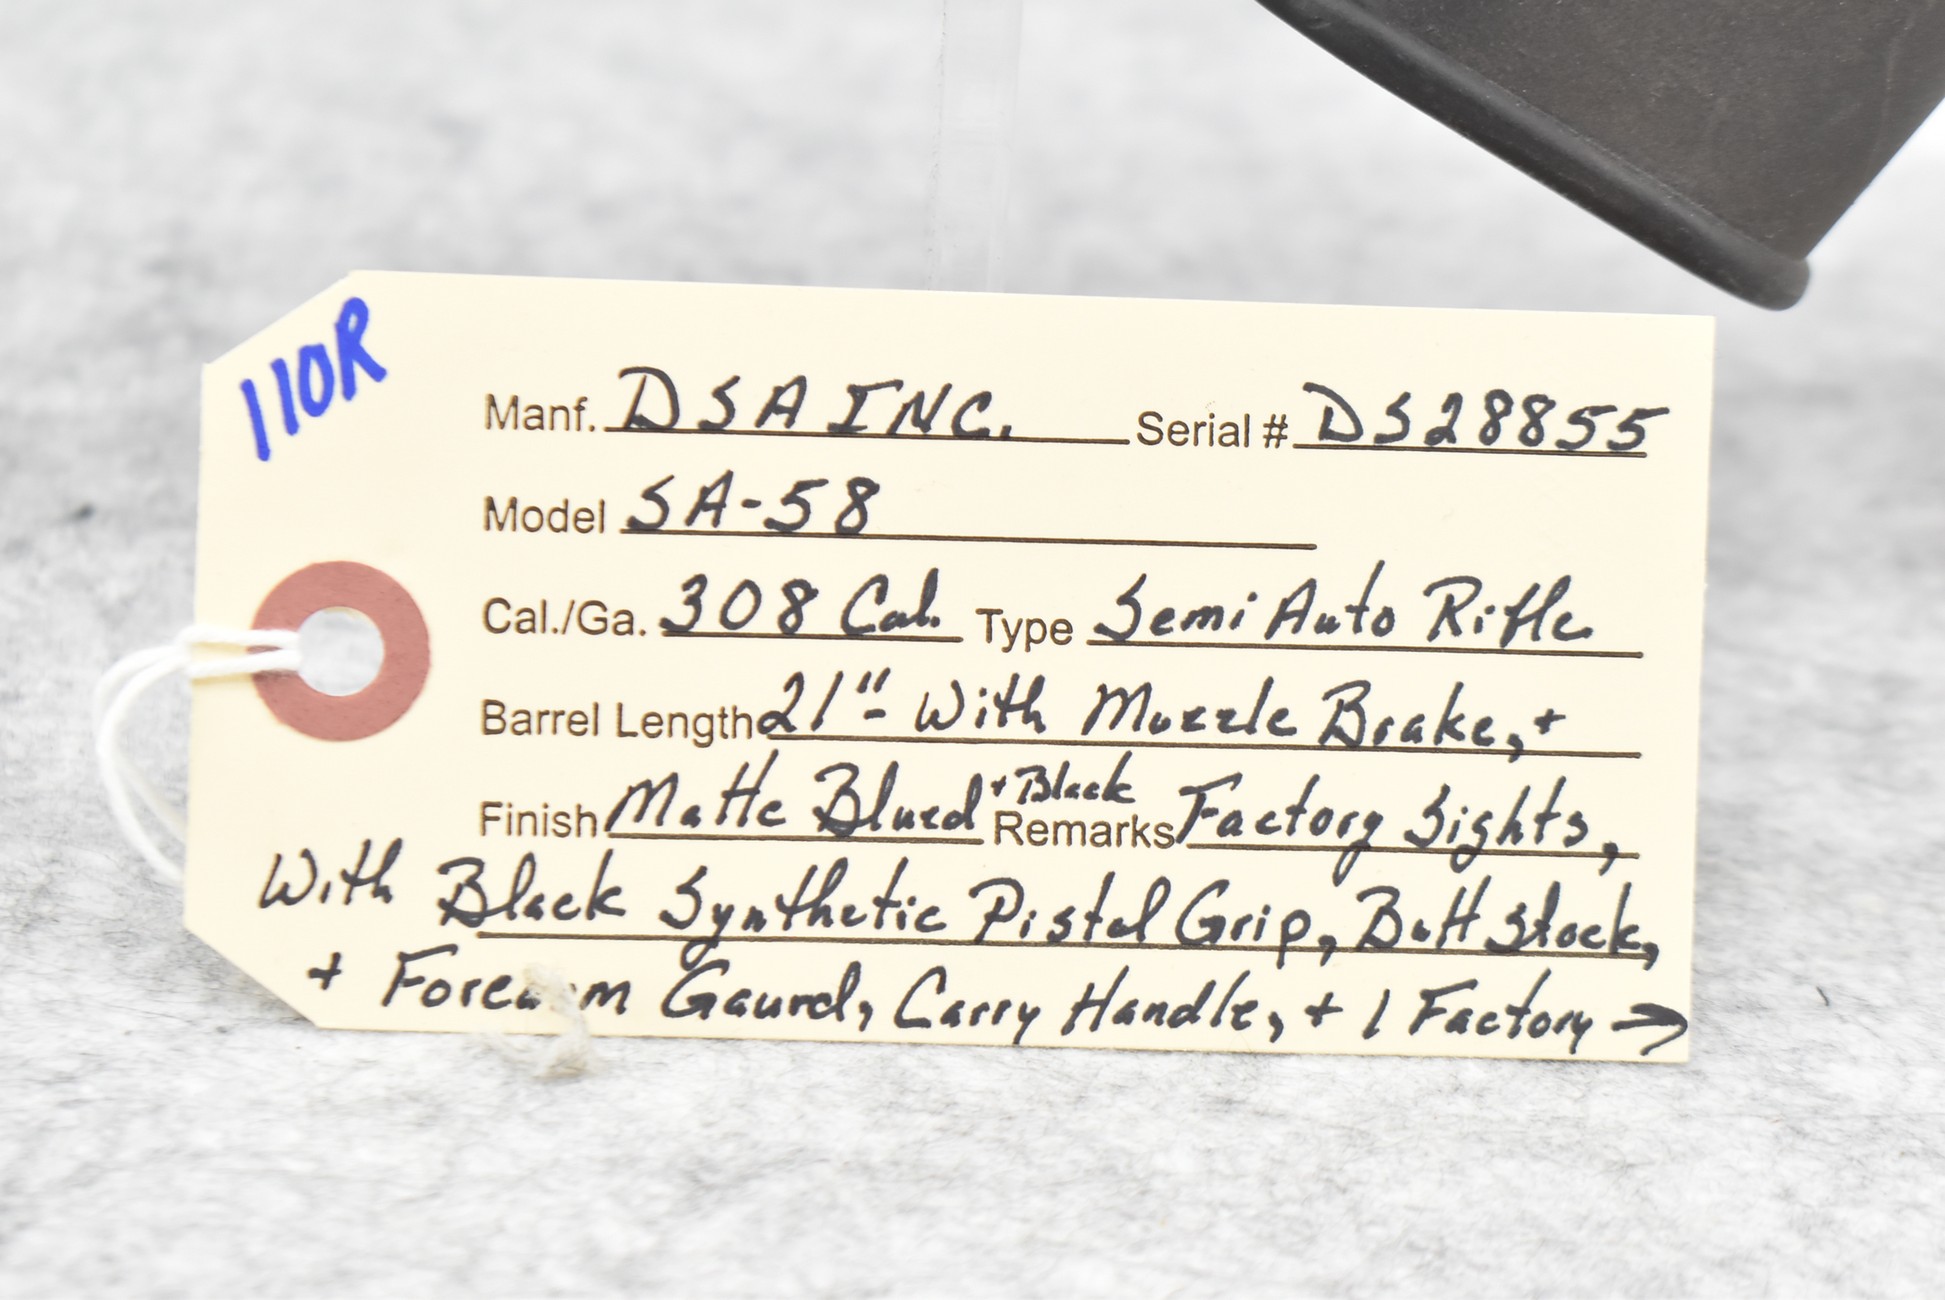 110R
Manf. DSA INC. Serial # DS28855
Model SA-58
Cal./Ga. 308 Cal. Type Semi Auto Rifle
Barrel Length 21" With Muzzle Brake, +
Finish Matte Blued + Black Remarks Factory Sights,
With Black Synthetic Pistol Grip, Butt Stock,
+ Forearm Gaurd, Carry Handle, + 1 Factory →